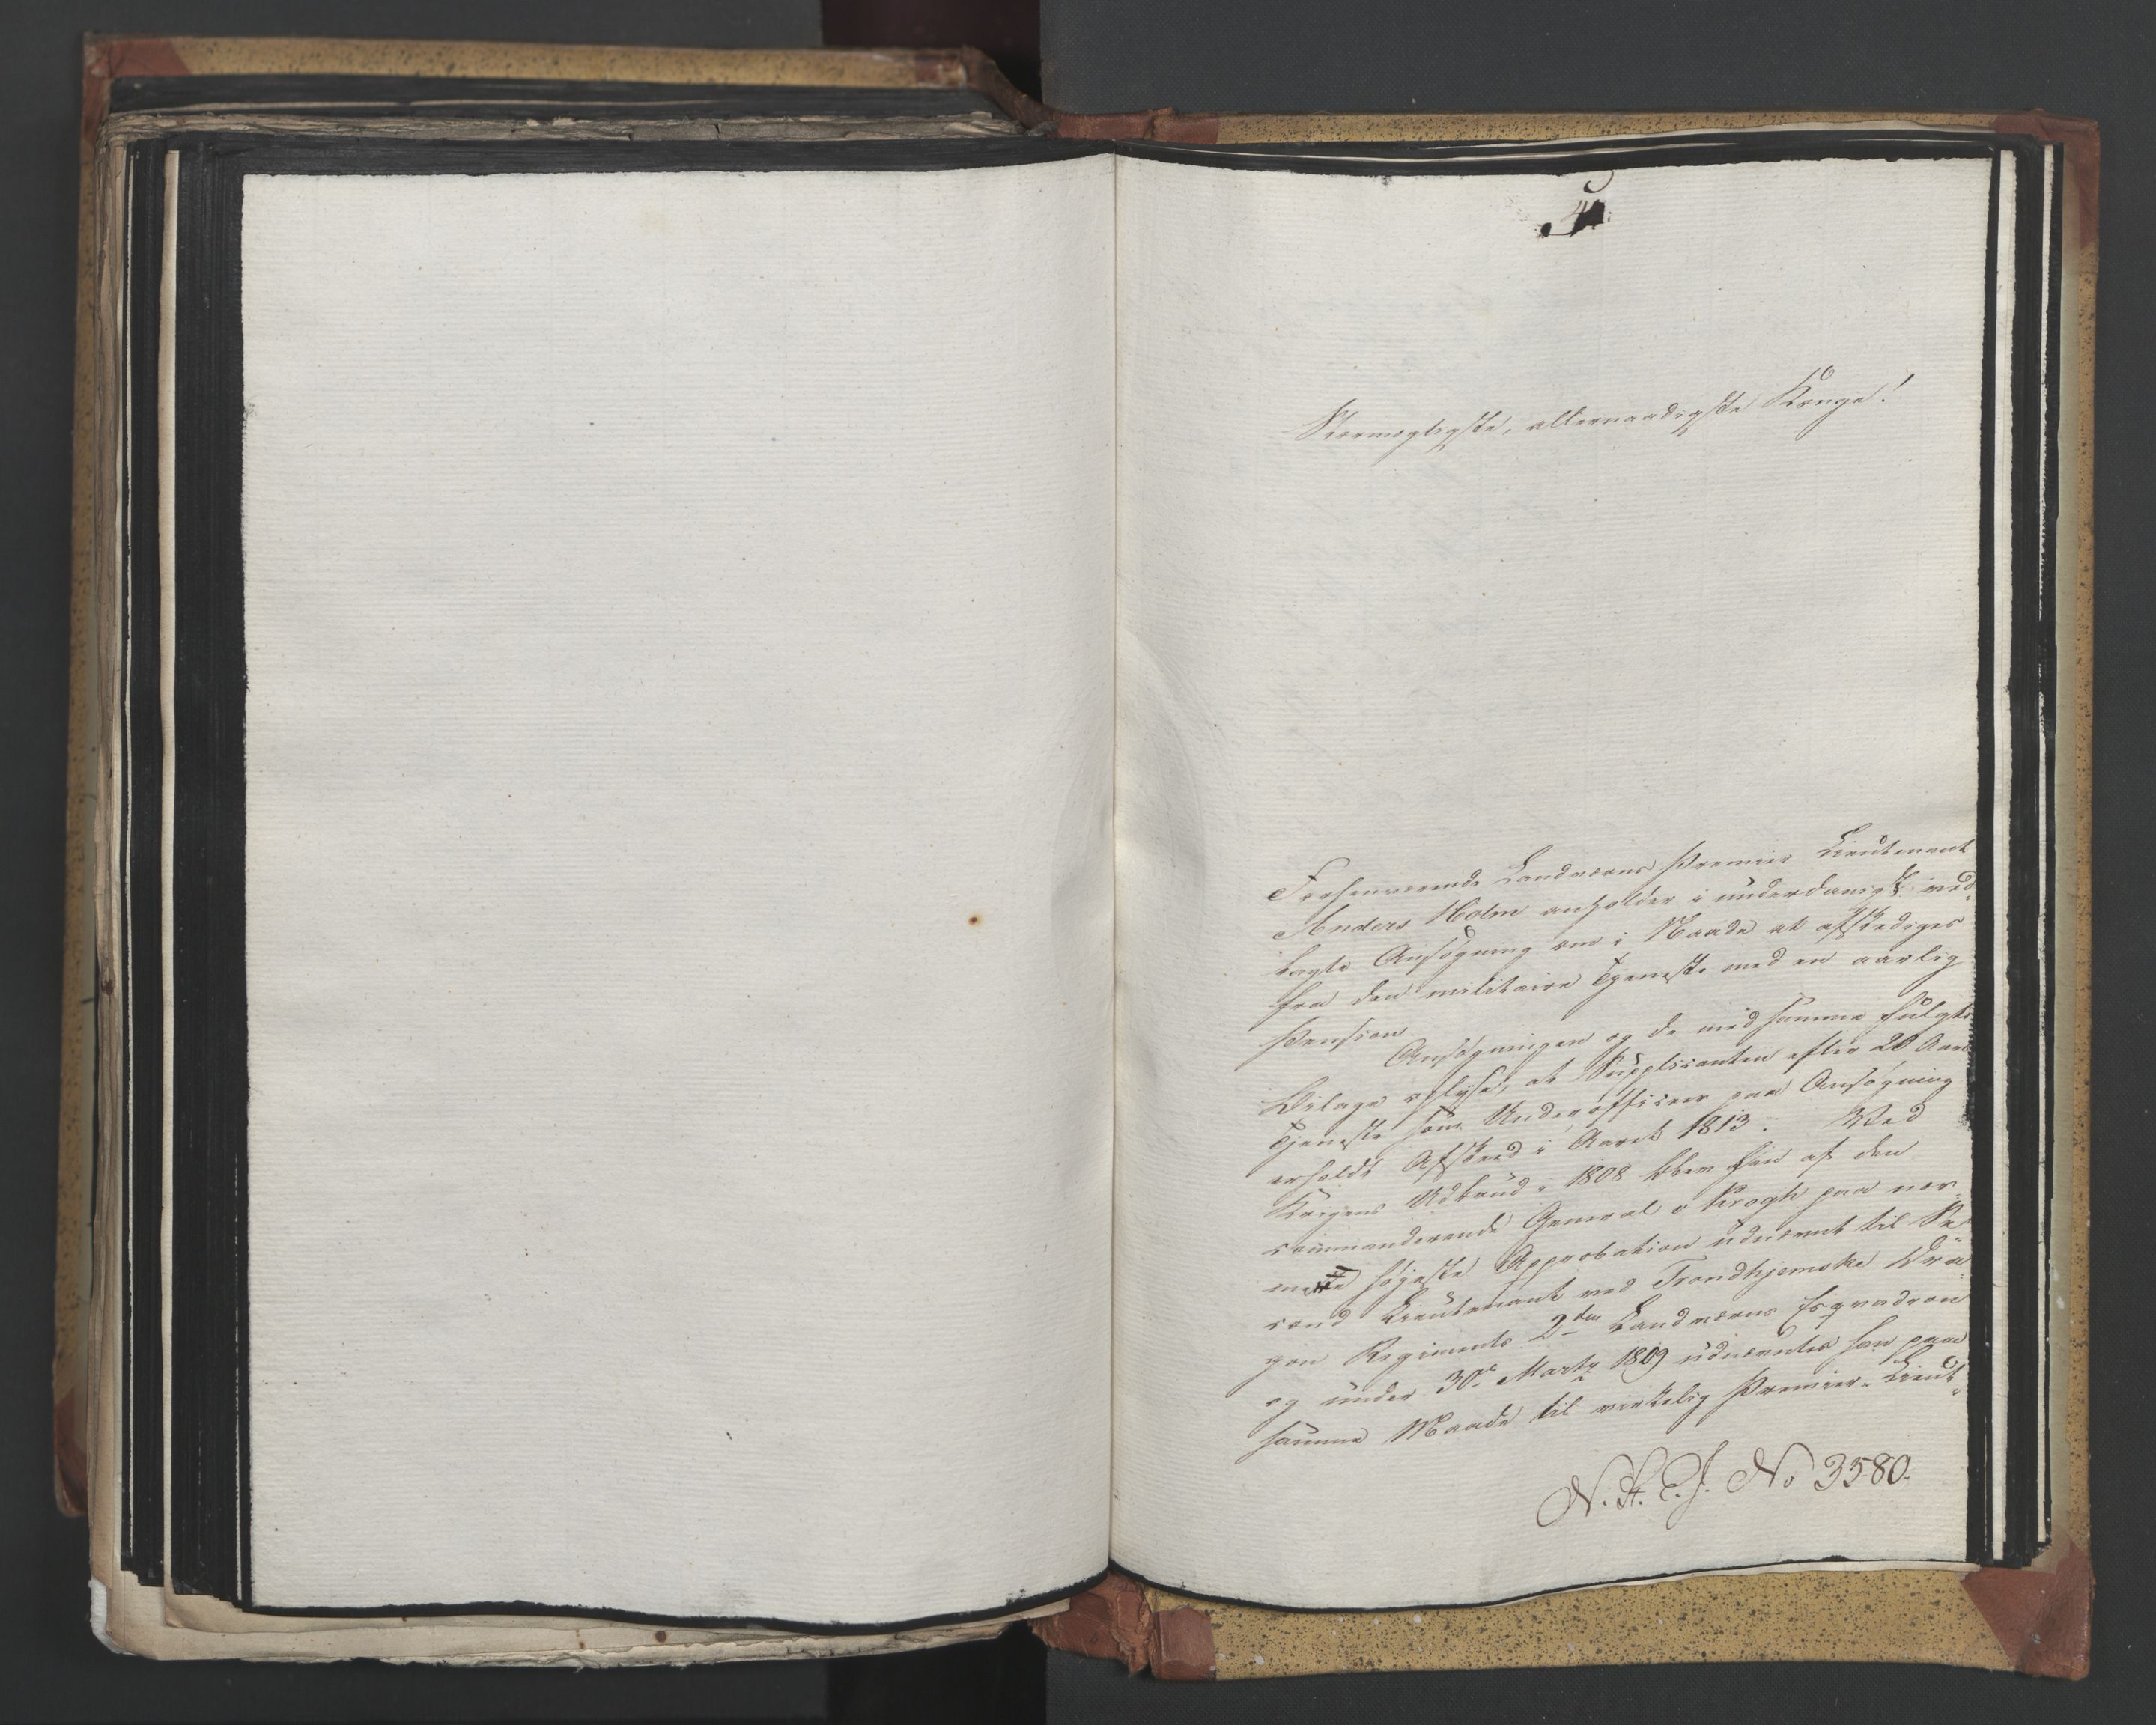 4.
Stormægtigste, allernaadigste Konge!
Forhenværende Landværns Premier Lieutenant
Anders Holm anholder i underdanigst ved-
lagte Ansøgning om i Naade at afskediges
fra den militaire Tjeneste med en aarlig
Pension.
Ansøgningen og de med samme fulgte
Bilage oplyse, at Supplicanten efter 20 Aars
Tjeneste som Underofficeer paa Ansøgning
erholdt Afskeed i Aaret 1813. Ved
Krigens Udbrud 1808 blev han af den
commanderende General v Krogh paa nær-
meste høyeste Approbation udnævnt til Se-
cond Lieutenant ved Trondhjemske Dra-
gon Regiments 2den Landværns Esqvadron
og under 30te Marty 1809 udnævntes han paa
samme Maade til virkelig Premier-Lieut-
N. St. E. J. No 3580.